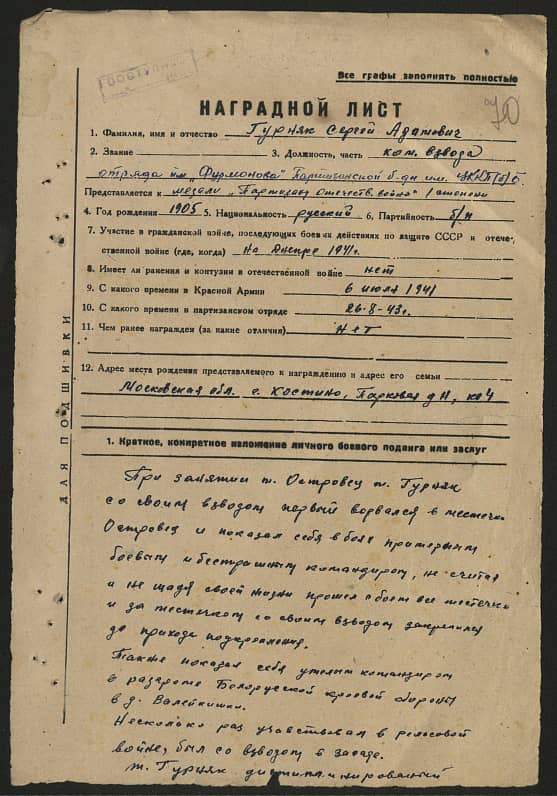 Все графы заполнять полностью
70
НАГРАДНОЙ ЛИСТ
1. Фамилия, имя и отчество Гурняк Сергей Адамович
2. Звание 3. Должность, часть ком. взвода
отряда им. „Фурмонова" Партизанской б-ды им. ЦККП(б)Б
Представляется к медали „Партизану отечеств. войны" I степени
4. Год рождения 1905 5. Национальность русский 6. Партийность б/п
7. Участие в гражданской войне, последующих боевых действиях по защите СССР и отече-
ственной войне (где, когда) На Днепре 1941г.
8. Имеет ли ранения и контузии в отечественной войне нет
9. С какого времени в Красной Армии 6 июля 1941
10. С какого времени в партизанском отряде 26-8-43г.
11. Чем ранее награжден (за какие отличия) Нет
12. Адрес места рождения представляемого к награждению и адрес его семьи
Московская обл. с. Костино, Парковая д
1. Краткое, конкретное изложение личного боевого подвига или заслуг
При занятии м. Островец т. Гурняк
со своим взводом первый ворвался в местечко
Островец и показал себя в бою примерным
боевым и бесстрашным командиром, не считая
и не щадя своей жизни прошел с боем все местечко
и за местечком со своим взводом закрепился
до прихода подкрепления.
Также показал себя умелым командиром
в разгроме Белорусской краевой обороны
в д. Валейкишки.
Несколько раз участвовал в рельсовой
войне, был со взводом в засаде.
т. Гурняк дисциплинированный
ДЛЯ ПОДШИВКИ